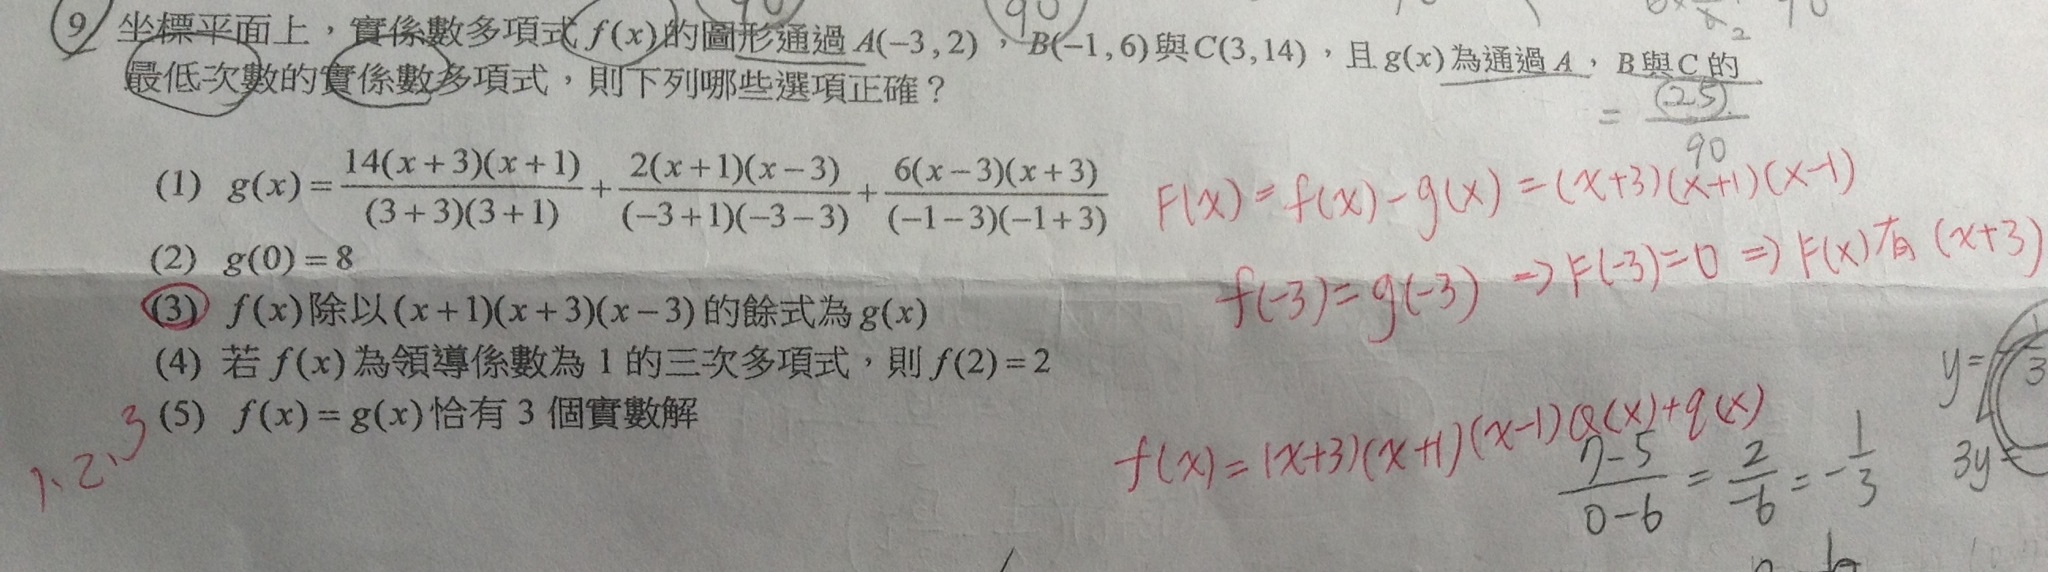 90
9 坐標平面上，實係數多項式 f(x) 的圖形通過 A(−3, 2)，B(−1, 6) 與 C(3, 14)，且 g(x) 為通過 A，B 與 C 的
最低次數的實係數多項式，則下列哪些選項正確？
= 25/90
(1) g(x) = 14(x+3)(x+1)/(3+3)(3+1) + 2(x+1)(x−3)/(−3+1)(−3−3) + 6(x−3)(x+3)/(−1−3)(−1+3)
F(x) = f(x) − g(x) = (x+3)(x+1)(x−1)
(2) g(0) = 8
f(−3) = g(−3) ⇒ F(−3) = 0 ⇒ F(x) 有 (x+3)
(3) f(x) 除以 (x+1)(x+3)(x−3) 的餘式為 g(x)
(4) 若 f(x) 為領導係數為 1 的三次多項式，則 f(2) = 2
(5) f(x) = g(x) 恰有 3 個實數解
1、2、3
f(x) = (x+3)(x+1)(x−1)Q(x)+q(x)
7−5/0−6 = 2/−6 = −1/3
3y=